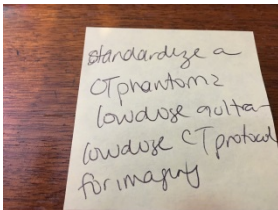 standardize a
CT phantom &
lowdose &ultra-
lowdose CT protocol
for imaging